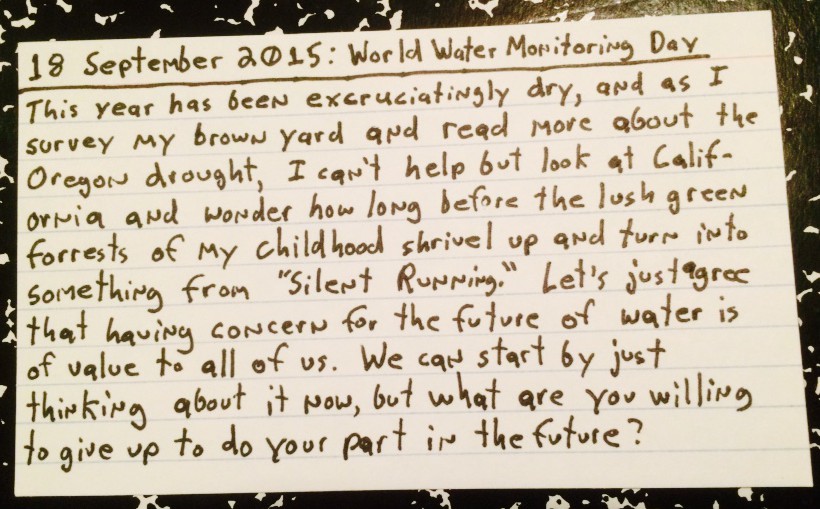 18 September 2015: World Water Monitoring Day
This year has been excruciatingly dry, and as I
survey my brown yard and read more about the
Oregon drought, I can't help but look at Calif-
ornia and wonder how long before the lush green
forrests of my childhood shrivel up and turn into
something from "Silent Running." Let's just agree
that having concern for the future of water is
of value to all of us. We can start by just
thinking about it now, but what are you willing
to give up to do your part in the future?